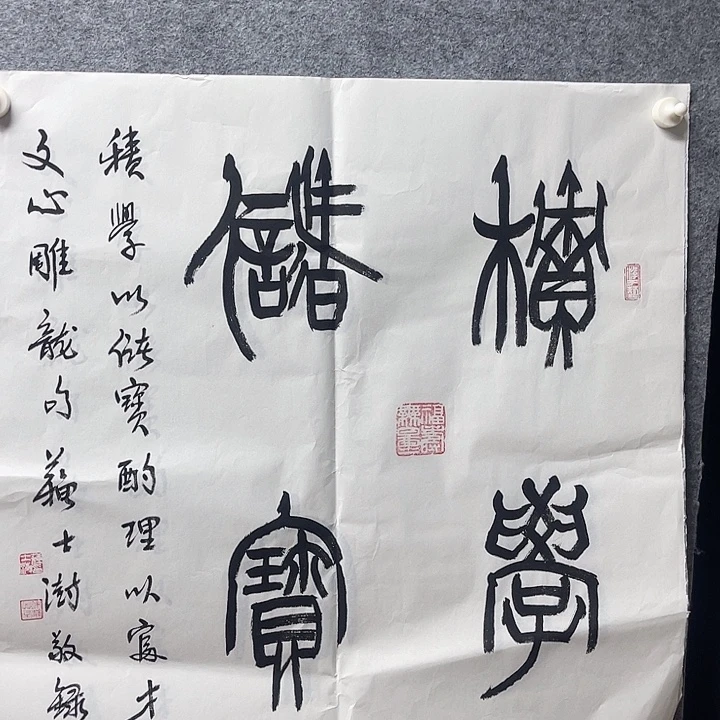 積學
儲寶
積學以儲寶酌理以富才
文心雕龍句蘇士澍敬錄
福壽無量